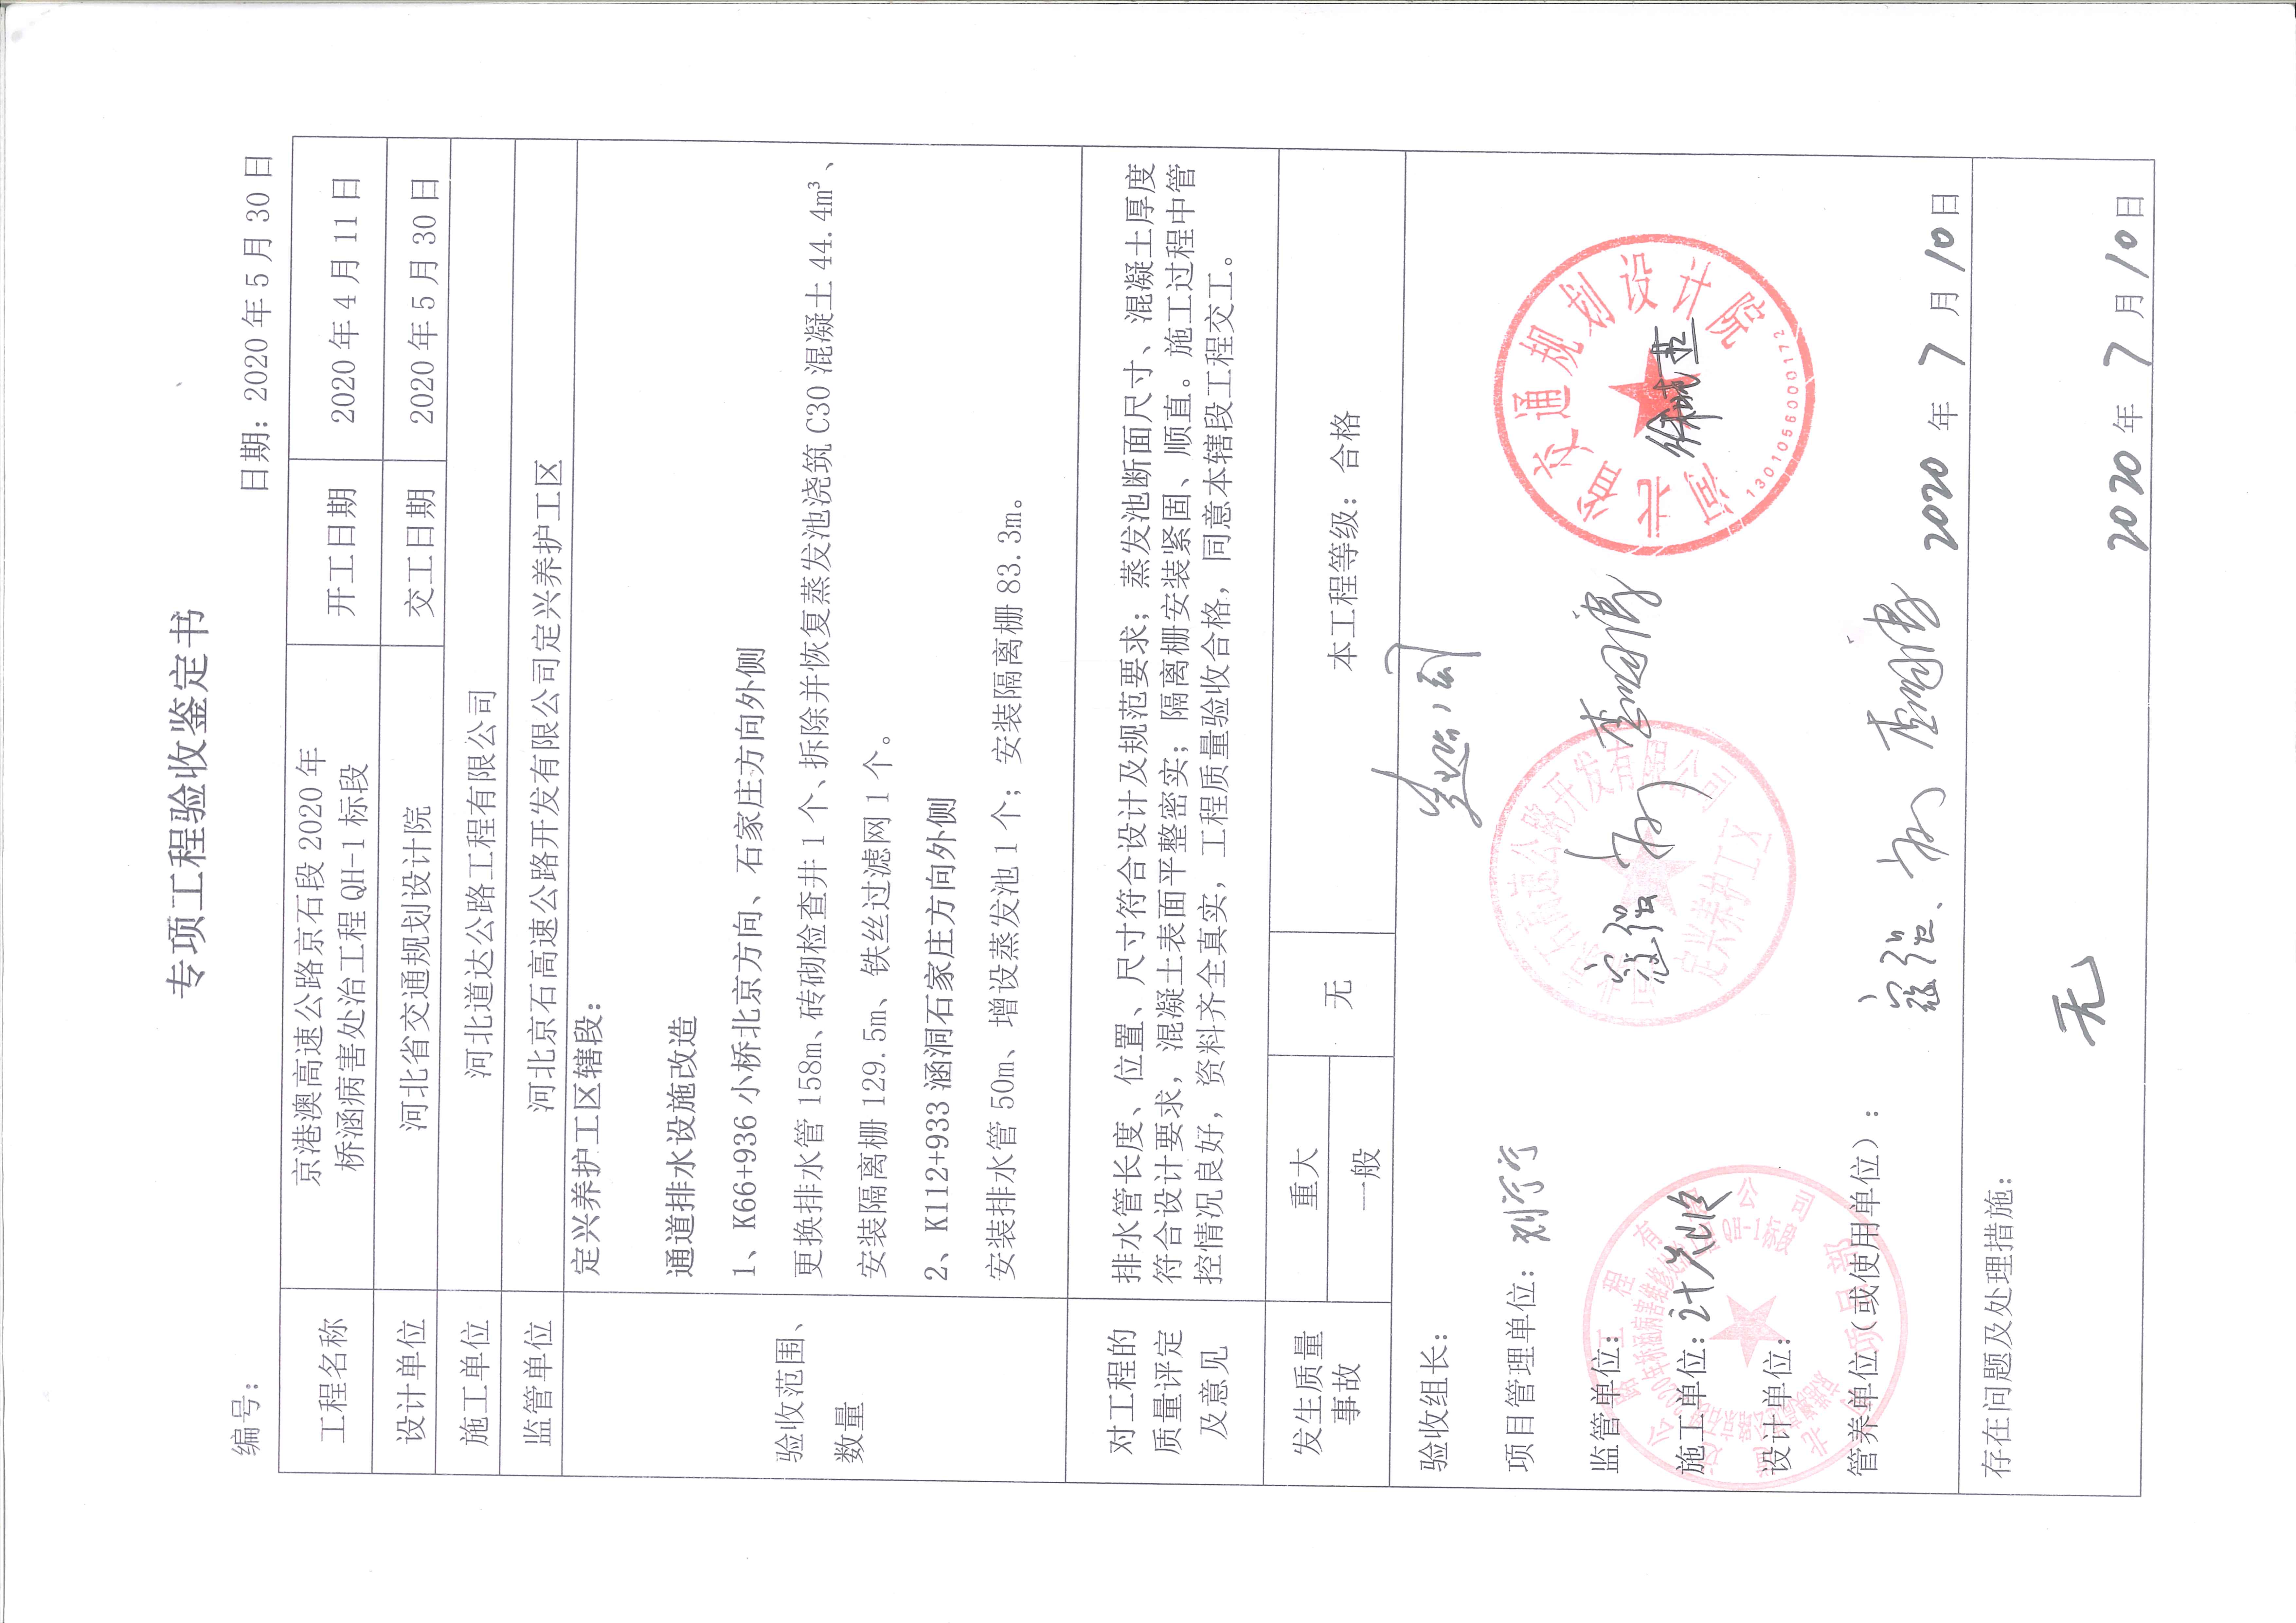 专项工程验收鉴定书
编号：
日期：2020 年 5 月 30 日
工程名称
京港澳高速公路京石段 2020 年
桥涵病害处治工程 QH-1 标段
开工日期
2020 年 4 月 11 日
设计单位
河北省交通规划设计院
交工日期
2020 年 5 月 30 日
施工单位
河北道达公路工程有限公司
监管单位
河北京石高速公路开发有限公司定兴养护工区
验收范围、
数量
定兴养护工区辖段：
通道排水设施改造
1、K66+936 小桥北京方向、石家庄方向外侧
更换排水管 158m、砖砌检查井 1 个、拆除并恢复蒸发池浇筑 C30 混凝土 44.4m³、
安装隔离栅 129.5m、铁丝过滤网 1 个。
2、K112+933 涵洞石家庄方向外侧
安装排水管 50m、增设蒸发池 1 个；安装隔离栅 83.3m。
对工程的
质量评定
及意见
排水管长度、位置、尺寸符合设计及规范要求；蒸发池断面尺寸、混凝土厚度
符合设计要求，混凝土表面平整密实；隔离栅安装紧固、顺直。施工过程中管
控情况良好，资料齐全真实，工程质量验收合格，同意本辖段工程交工。
发生质量
事故
重大
一般
无
本工程等级：合格
验收组长：
项目管理单位：
监管单位：
施工单位：
设计单位：
管养单位（或使用单位）：
河北省交通规划设计院
1301056000172
定兴养护工区
2020 年 7 月 10 日
存在问题及处理措施：
无
2020 年 7 月 10 日